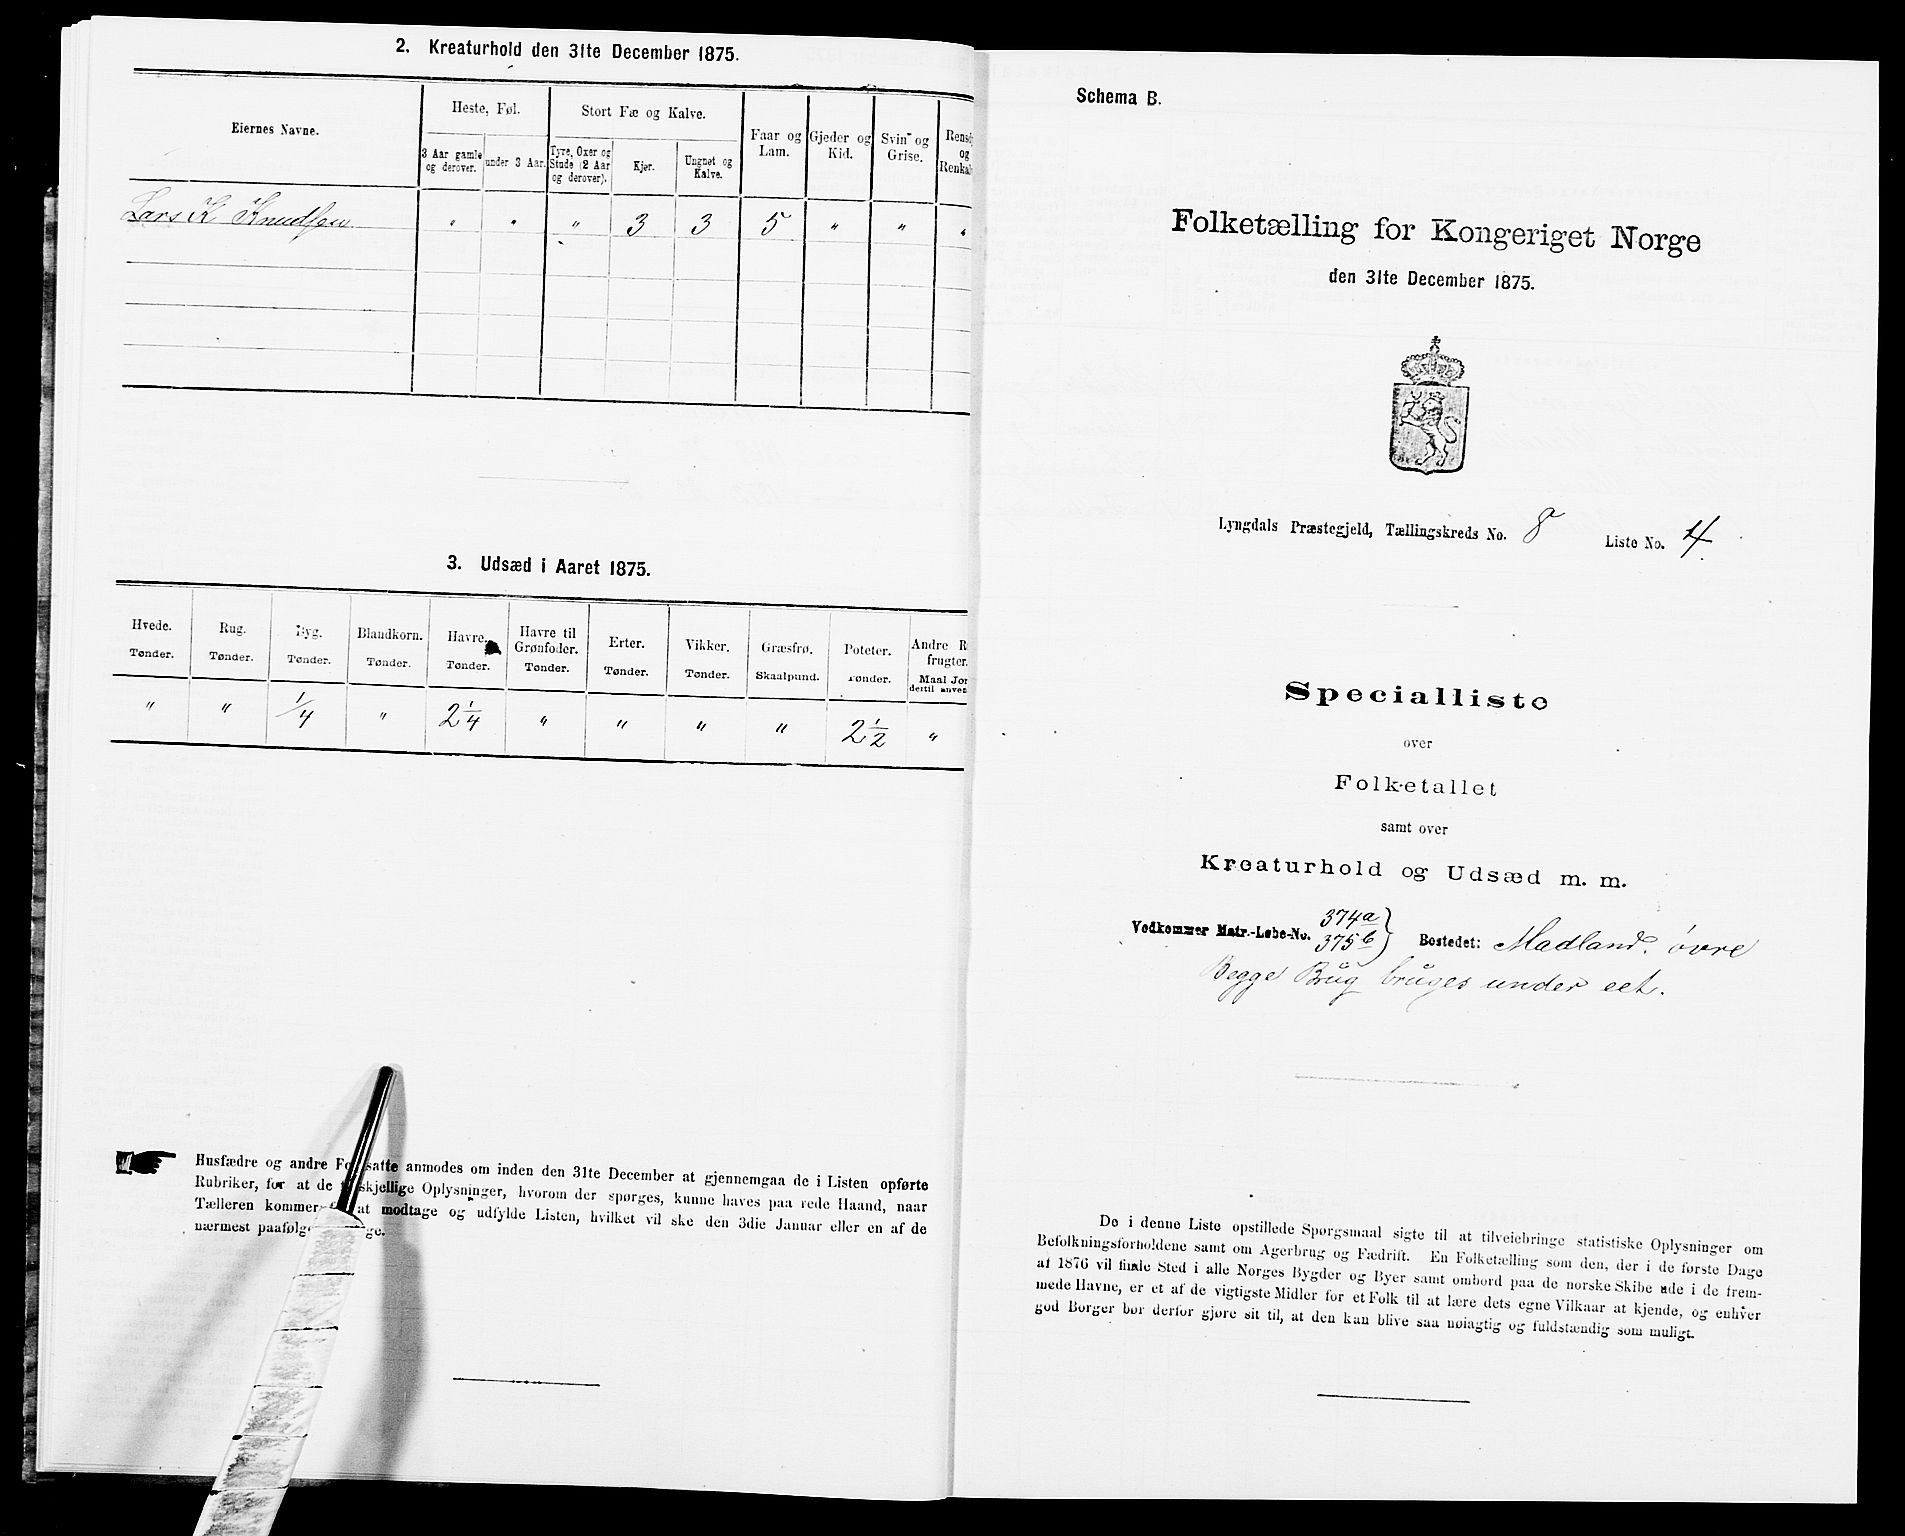 2. Kreaturhold den 31te December 1875.
Eiernes Navne.
Heste, Føl.
3 Aar gamle og derover.
under 3 Aar.
Stort Fæ og Kalve.
Tyre, Oxer og Stude (2 Aar og derover).
Kjer.
Ungnøt og Kalve.
Faar og Lam.
Gjeder og Kid.
Svin og Grise.
Rensd
og
Renkal
Lars K Knudsen " " " 3 3 5 " " "
3. Udsæd i Aaret 1875.
Hvede. Rug. Byg. Blandkorn. Havre. Havre til Grønfoder. Erter. Vikker. Græsfrø. Poteter. Andre R frugter.
Tønder. Tønder. Tønder. Tønder. Tønder. Tønder. Tønder. Tønder. Skaalpund. Tønder. Maal Jor dertil anven
" " 1/4 " 2 1/4 " " " " 2 1/2 "
Husfædre og andre Foresatte anmodes om inden den 31te December at gjennemgaa de i Listen opførte
Rubriker, for at de forskjellige Oplysninger, hvorom der spørges, kunne haves paa rede Haand, naar
Tælleren kommer for at modtage og udfylde Listen, hvilket vil ske den 3die Januar eller en af de
nærmest paafølgende Dage.
Schema B.
Folketælling for Kongeriget Norge
den 31te December 1875.
Lyngdals Præstegjeld, Tællingskreds No. 8 Liste No. 4.
Specialliste
over
Folketallet
samt over
Kreaturhold og Udsæd m. m.
Vedkommer Matr.-Løbe-No. 374a 375b } Bostedet: Madland. övre
Begge Brug bruges under eet.
De i denne Liste opstillede Spørgsmaal sigte til at tilveiebringe statistiske Oplysninger om
Befolkningsforholdene samt om Agerbrug og Fædrift. En Folketælling som den, der i de første Dage
af 1876 vil finde Sted i alle Norges Bygder og Byer samt ombord paa de norske Skibe ude i de frem-
mede Havne, er et af de vigtigste Midler for et Folk til at lære dets egne Vilkaar at kjende, og enhver
god Borger bør derfor gjøre sit til, at den kan blive saa nøiagtig og fuldstændig som muligt.